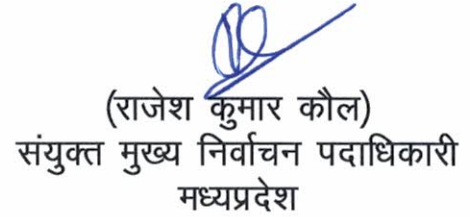 (राजेश कुमार कौल)
संयुक्त मुख्य निर्वाचन पदाधिकारी
मध्यप्रदेश